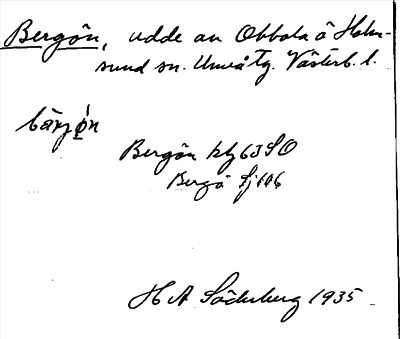 Bergön, udde av Obbola å Holm-
sund sn. Umeå tg. Västerb. l.
bärjọ́n
Bergön kbl 63 SO
Bergö Sj 106
H A Söderberg 1935